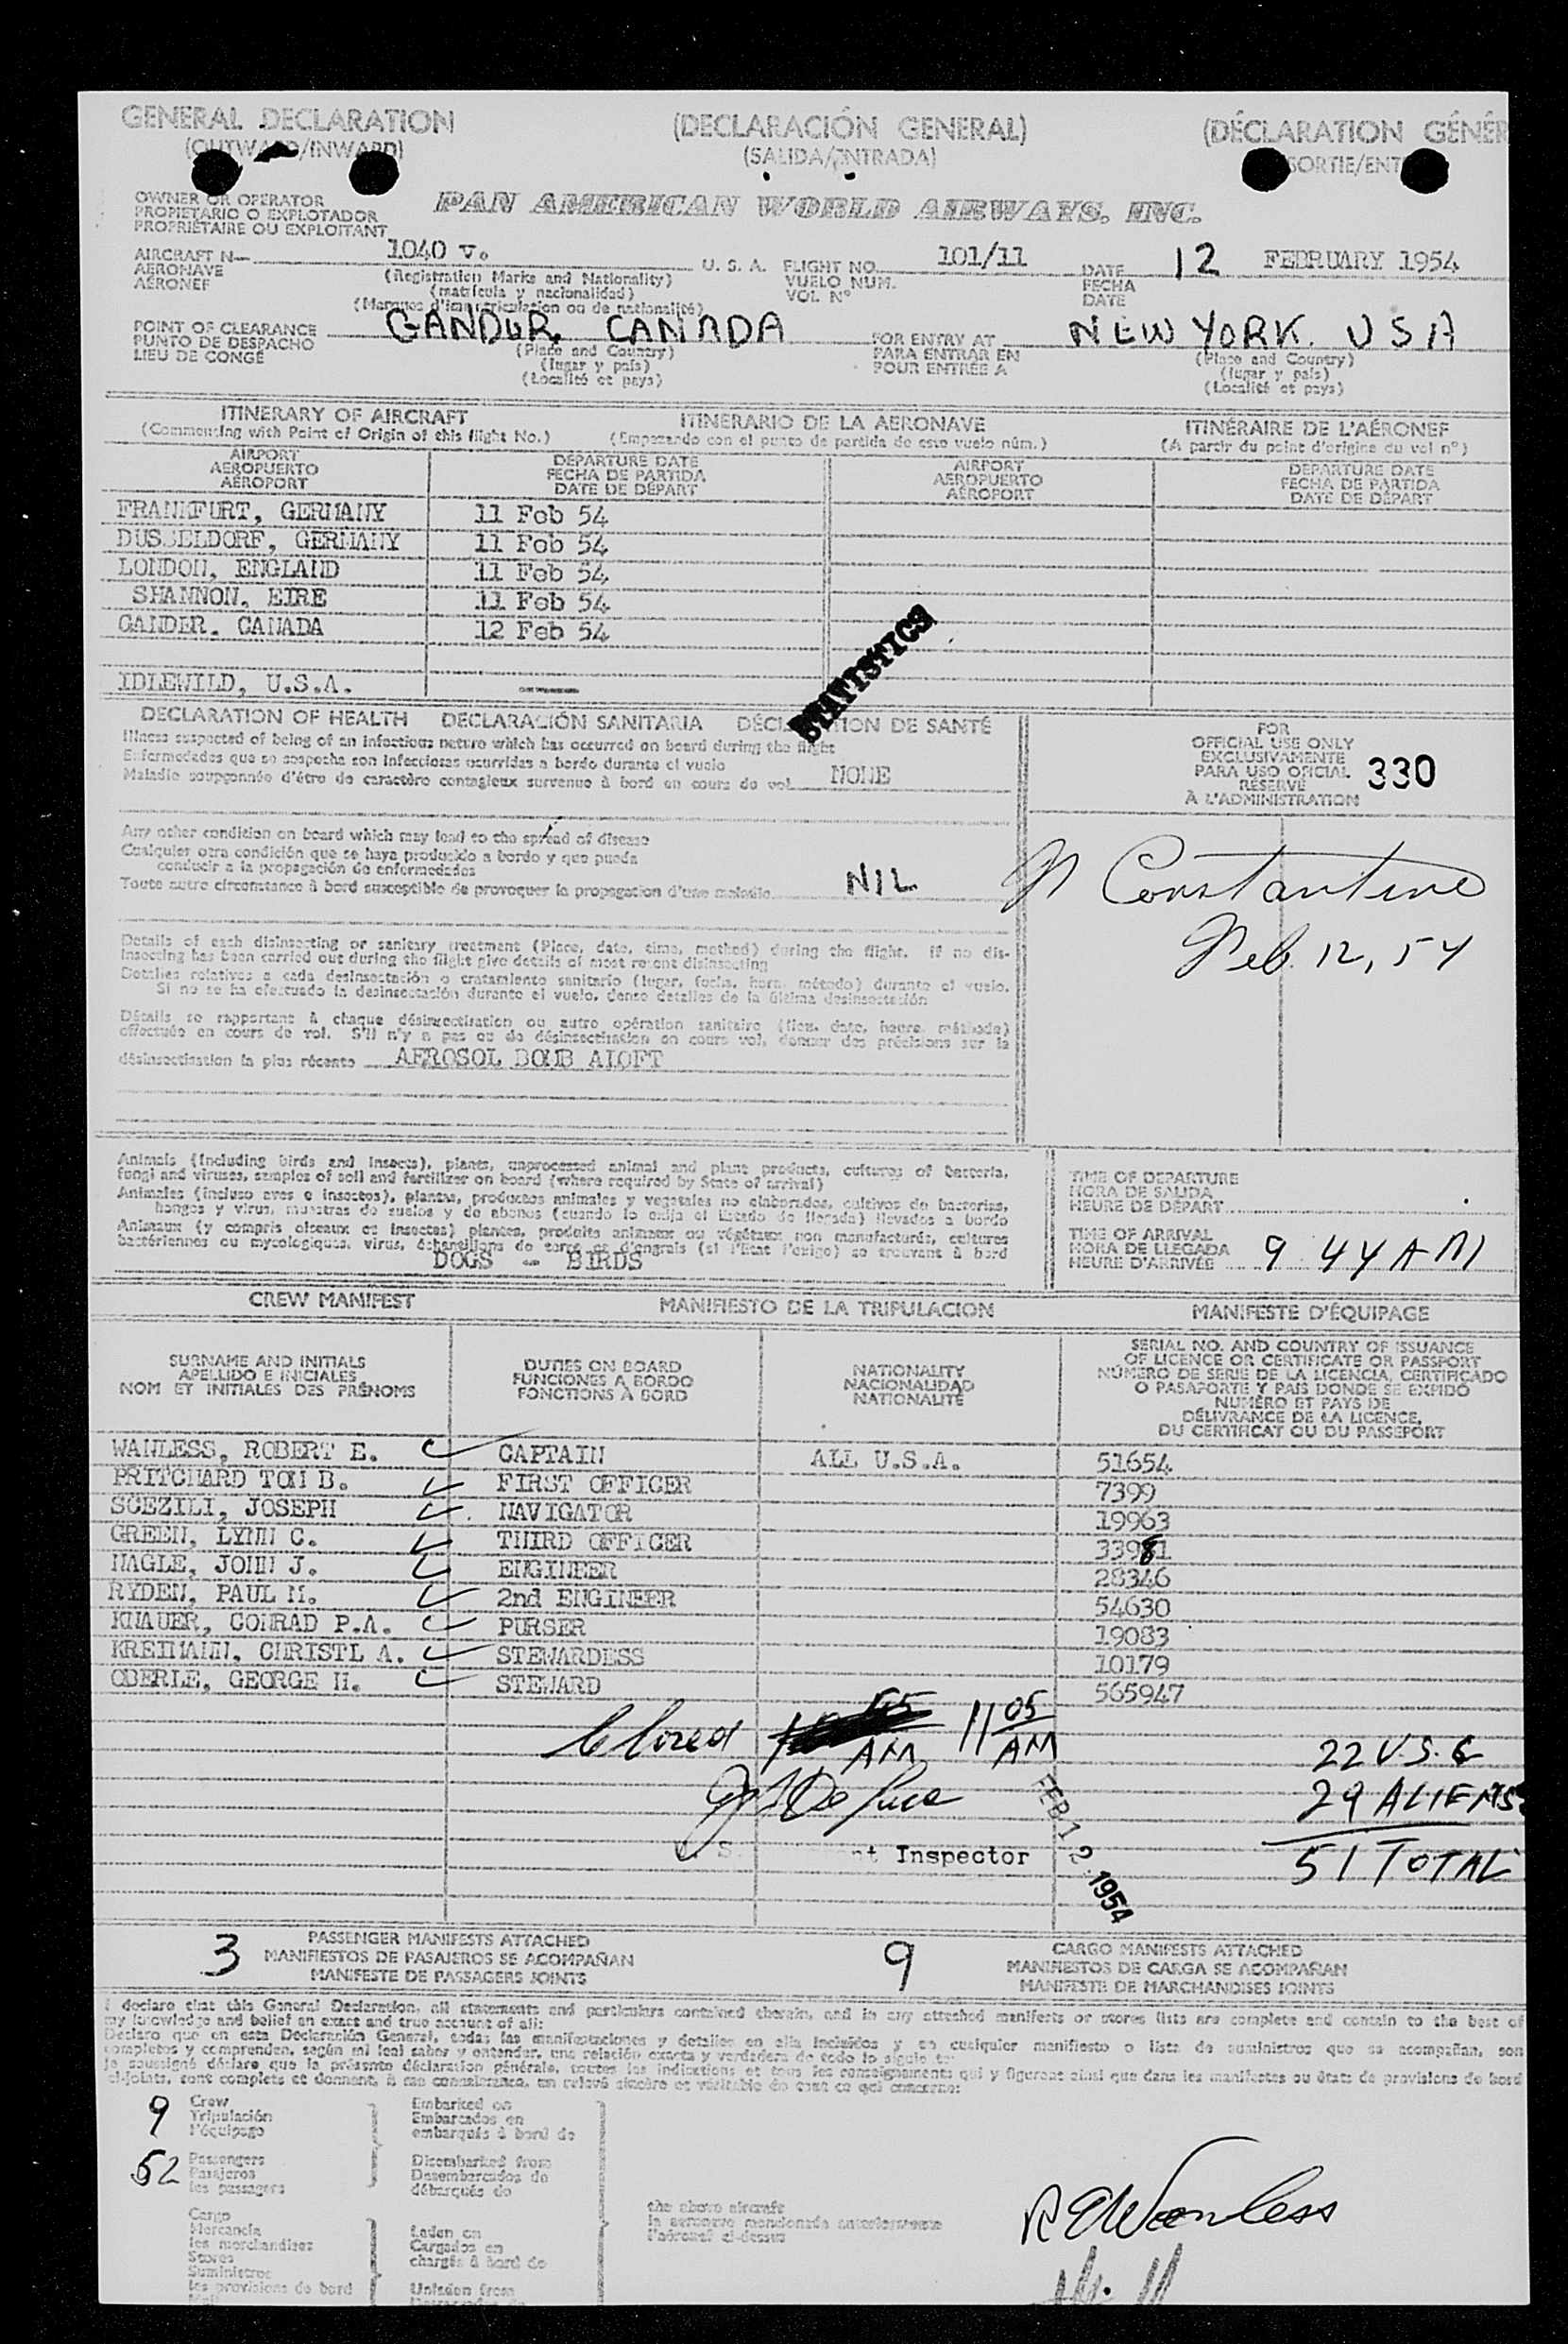 GENERAL DECLARATION
(OUTWARD/INWARD)
(DECLARACIÓN GENERAL)
(SALIDA/ENTRADA)
(DÉCLARATION GÉNÉR
SORTIE/ENT
OWNER OR OPERATOR
PROPIETARIO O EXPLOTADOR
PROPRIÉTAIRE OU EXPLOITANT
PAN AMERICAN WORLD AIRWAYS, INC.
AIRCRAFT N
AERONAVE
AÉRONEF
1040 V.
U. S. A.
(Registration Marks and Nationality)
(matrícula y nacionalidad)
(Marques d'immatriculation ou de nationalité)
FLIGHT NO.
VUELO NUM.
VOL N°
101/11
DATE
FECHA
DATE
12 FEBRUARY 1954
POINT OF CLEARANCE
PUNTO DE DESPACHO
LIEU DE CONGÉ
GANDER CANADA
(Place and Country)
(lugar y país)
(Localité et pays)
FOR ENTRY AT
PARA ENTRAR EN
POUR ENTRÉE A
NEW YORK. USA
(Place and Country)
(lugar y país)
(Localité et pays)
ITINERARY OF AIRCRAFT
(Commencing with Point of Origin of this flight No.)
ITINERARIO DE LA AERONAVE
(Empezando con el punto de partida de este vuelo núm.)
ITINÉRAIRE DE L'AÉRONEF
(A partir du point d'origine du vol n°)
AIRPORT
AEROPUERTO
AÉROPORT
DEPARTURE DATE
FECHA DE PARTIDA
DATE DE DÉPART
AIRPORT
AEROPUERTO
AÉROPORT
DEPARTURE DATE
FECHA DE PARTIDA
DATE DE DÉPART
FRANKFURT, GERMANY 11 Feb 54
DUSSELDORF, GERMANY 11 Feb 54
LONDON, ENGLAND 11 Feb 54
SHANNON, EIRE 11 Feb 54
GANDER. CANADA 12 Feb 54
IDLEWILD, U.S.A.
STATISTICS
DECLARATION OF HEALTH DECLARACIÓN SANITARIA DÉCL TION DE SANTÉ
Illness suspected of being of an infectious nature which has occurred on board during the flight
Enfermedades que se sospecha son infecciosas ocurridas a bordo durante el vuelo
Maladie soupçonnée d'être de caractère contagieux survenue à bord en cours de vol NONE
FOR
OFFICIAL USE ONLY
EXCLUSIVAMENTE
PARA USO OFICIAL
RÉSERVÉ
À L'ADMINISTRATION
330
Any other condition on board which may lead to the spread of disease
Cualquier otra condición que se haya producido a bordo y que pueda
conducir a la propagación de enfermedades
Toute autre circonstance à bord susceptible de provoquer la propagation d'une maladie NIL
Constantine
Feb. 12, 54
Details of each disinsecting or sanitary treatment (Place, date, time, method) during the flight. If no dis-
insecting has been carried out during the flight give details of most recent disinsecting
Detalles relativos a cada desinsectación o tratamiento sanitario (lugar, fecha, hora, método) durante el vuelo.
Si no se ha efectuado la desinsectación durante el vuelo, dense detalles de la última desinsectación
Détails se rapportant à chaque désinsectisation ou autre opération sanitaire (lieu, date, heure, méthode)
effectuée en cours de vol. S'il n'y a pas eu de désinsectisation en cours vol, donner des précisions sur la
désinsectisation la plus récente AEROSOL BOMB ALOFT
Animals (including birds and insects), plants, unprocessed animal and plant products, cultures of bacteria,
fungi and viruses, samples of soil and fertilizer on board (where required by State of arrival)
Animales (incluso aves e insectos), plantas, productos animales y vegetales no elaborados, cultivos de bacterias,
hongos y virus, muestras de suelos y de abonos (cuando lo exija el Estado de llegada) llevados a bordo
Animaux (y compris oiseaux et insectes) plantes, produits animaux ou végétaux non manufacturés, cultures
bactériennes ou mycologiques, virus, échantillons de terre et d'engrais (si l'État l'exige) se trouvant à bord
DOGS - BIRDS
TIME OF DEPARTURE
HORA DE SALIDA
HEURE DE DÉPART
TIME OF ARRIVAL
HORA DE LLEGADA
HEURE D'ARRIVÉE 9 44 AM
CREW MANIFEST MANIFIESTO DE LA TRIPULACION MANIFESTE D'ÉQUIPAGE
SURNAME AND INITIALS
APELLIDO E INICIALES
NOM ET INITIALES DES PRÉNOMS
DUTIES ON BOARD
FUNCIONES A BORDO
FONCTIONS À BORD
NATIONALITY
NACIONALIDAD
NATIONALITÉ
SERIAL NO. AND COUNTRY OF ISSUANCE
OF LICENCE OR CERTIFICATE OR PASSPORT
NÚMERO DE SERIE DE LA LICENCIA, CERTIFICADO
O PASAPORTE Y PAIS DONDE SE EXPIDÓ
NUMÉRO ET PAYS DE
DÉLIVRANCE DE LA LICENCE,
DU CERTIFICAT OU DU PASSEPORT
WANLESS, ROBERT E. CAPTAIN ALL U.S.A. 51654
PRITCHARD TOM B. FIRST OFFICER 7399
SCEZILI, JOSEPH NAVIGATOR 19963
GREEN, LYNN C. THIRD OFFICER 33981
NAGLE, JOHN J. ENGINEER 28346
RYDEN, PAUL M. 2nd ENGINEER 54630
KNAUER, CONRAD P.A. PURSER 19083
KREIMANN, CHRISTL A. STEWARDESS 10179
OBERLE, GEORGE H. STEWARD 565947
Closed AM 11 05 AM
22 U.S.C
29 ALIENS
51 TOTAL
nt Inspector
FEB 12 1954
3 PASSENGER MANIFESTS ATTACHED
MANIFIESTOS DE PASAJEROS SE ACOMPAÑAN
MANIFESTE DE PASSAGERS JOINTS
9 CARGO MANIFESTS ATTACHED
MANIFIESTOS DE CARGA SE ACOMPAÑAN
MANIFESTE DE MARCHANDISES JOINTS
I declare that this General Declaration, all statements and particulars contained therein, and in any attached manifests or stores lists are complete and contain to the best of
my knowledge and belief an exact and true account of all:
Declaro que en esta Declaración General, todas las manifestaciones y detalles en ella incluidos y en cualquier manifiesto o lista de suministros que se acompañan, son
completos y comprenden, según mi leal saber y entender, una relación exacta y verdadera de todo lo
je soussigné déclare que la présente déclaration générale, toutes les indications et tous les renseignements qui y figurent ainsi que dans les manifestes ou états de provisions de bord
ci-joints, sont complets et donnent, à ma connaissance, un relevé sincère et véritable de tout ce qui concerne:
9 Crew
Tripulación
l'équipage
Embarked on
Embarcados en
embarqués à bord de
52 Passengers
Pasajeros
les passagers
Disembarked from
Desembarcados de
débarqués de
Cargo
Mercancía
les marchandises
Stores
Suministros
les provisions de bord
Laden on
Cargados en
chargés à bord de
Unladen from
the above aircraft
la aeronave mencionada anteriormente
l'aéronef ci-dessus
R E Wanless